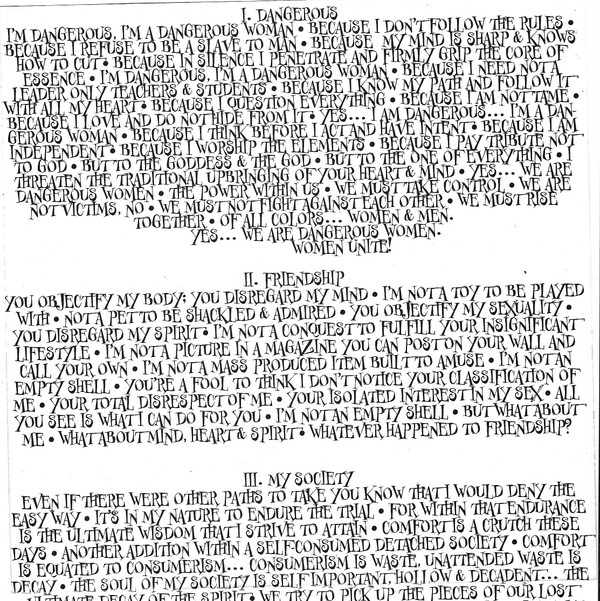 I. DANGEROUS
I'M DANGEROUS, I'M A DANGEROUS WOMAN • BECAUSE I DON'T FOLLOW THE RULES •
BECAUSE I REFUSE TO BE A SLAVE TO MAN • BECAUSE MY MIND IS SHARP & KNOWS
HOW TO CUT • BECAUSE IN SILENCE I PENETRATE AND FIRMLY GRIP THE CORE OF
ESSENCE • I'M DANGEROUS, I'M A DANGEROUS WOMAN • BECAUSE I NEED NOT A
LEADER ONLY TEACHERS & STUDENTS • BECAUSE I KNOW MY PATH AND FOLLOW IT
WITH ALL MY HEART • BECAUSE I QUESTION EVERYTHING • BECAUSE I AM NOT TAME •
BECAUSE I LOVE AND DO NOT HIDE FROM IT • YES... I AM DANGEROUS... I'M A DAN-
GEROUS WOMAN • BECAUSE I THINK BEFORE I ACT AND HAVE INTENT • BECAUSE I AM
INDEPENDENT • BECAUSE I WORSHIP THE ELEMENTS • BECAUSE I PAY TRIBUTE NOT
TO GOD • BUT TO THE GODDESS & THE GOD • BUT TO THE ONE OF EVERYTHING • I
THREATEN THE TRADITIONAL UPBRINGING OF YOUR HEART & MIND • YES... WE ARE
DANGEROUS WOMEN • THE POWER WITHIN US • WE MUST TAKE CONTROL • WE ARE
NOT VICTIMS, NO • WE MUST NOT FIGHT AGAINST EACH OTHER • WE MUST RISE
TOGETHER • OF ALL COLORS... WOMEN & MEN.
YES... WE ARE DANGEROUS WOMEN.
WOMEN UNITE!
II. FRIENDSHIP
YOU OBJECTIFY MY BODY; YOU DISREGARD MY MIND • I'M NOT A TOY TO BE PLAYED
WITH • NOT A PET TO BE SHACKLED & ADMIRED • YOU OBJECTIFY MY SEXUALITY •
YOU DISREGARD MY SPIRIT • I'M NOT A CONQUEST TO FULFILL YOUR INSIGNIFICANT
LIFESTYLE • I'M NOT A PICTURE IN A MAGAZINE YOU CAN POST ON YOUR WALL AND
CALL YOUR OWN • I'M NOT A MASS PRODUCED ITEM BUILT TO AMUSE • I'M NOT AN
EMPTY SHELL • YOU'RE A FOOL TO THINK I DON'T NOTICE YOUR CLASSIFICATION OF
ME • YOUR TOTAL DISRESPECT OF ME • YOUR ISOLATED INTEREST IN MY SEX • ALL
YOU SEE IS WHAT I CAN DO FOR YOU • I'M NOT AN EMPTY SHELL • BUT WHAT ABOUT
ME • WHAT ABOUT MIND, HEART & SPIRIT • WHATEVER HAPPENED TO FRIENDSHIP?
III. MY SOCIETY
EVEN IF THERE WERE OTHER PATHS TO TAKE YOU KNOW THAT I WOULD DENY THE
EASY WAY • IT'S IN MY NATURE TO ENDURE THE TRIAL • FOR WITHIN THAT ENDURANCE
IS THE ULTIMATE WISDOM THAT I STRIVE TO ATTAIN • COMFORT IS A CRUTCH THESE
DAYS • ANOTHER ADDITION WITHIN A SELF-CONSUMED DETACHED SOCIETY • COMFORT
IS EQUATED TO CONSUMERISM... CONSUMERISM IS WASTE, UNATTENDED WASTE IS
DECAY • THE SOUL OF MY SOCIETY IS SELF IMPORTANT, HOLLOW & DECADENT... THE
ULTIMATE DECAY OF THE SPIRIT • WE TRY TO PICK UP THE PIECES OF OUR LOST